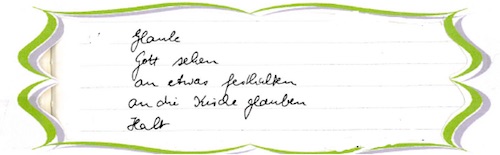 Glaube
Gott sehen
an etwas festhalten
an die Kirche glauben
Halt